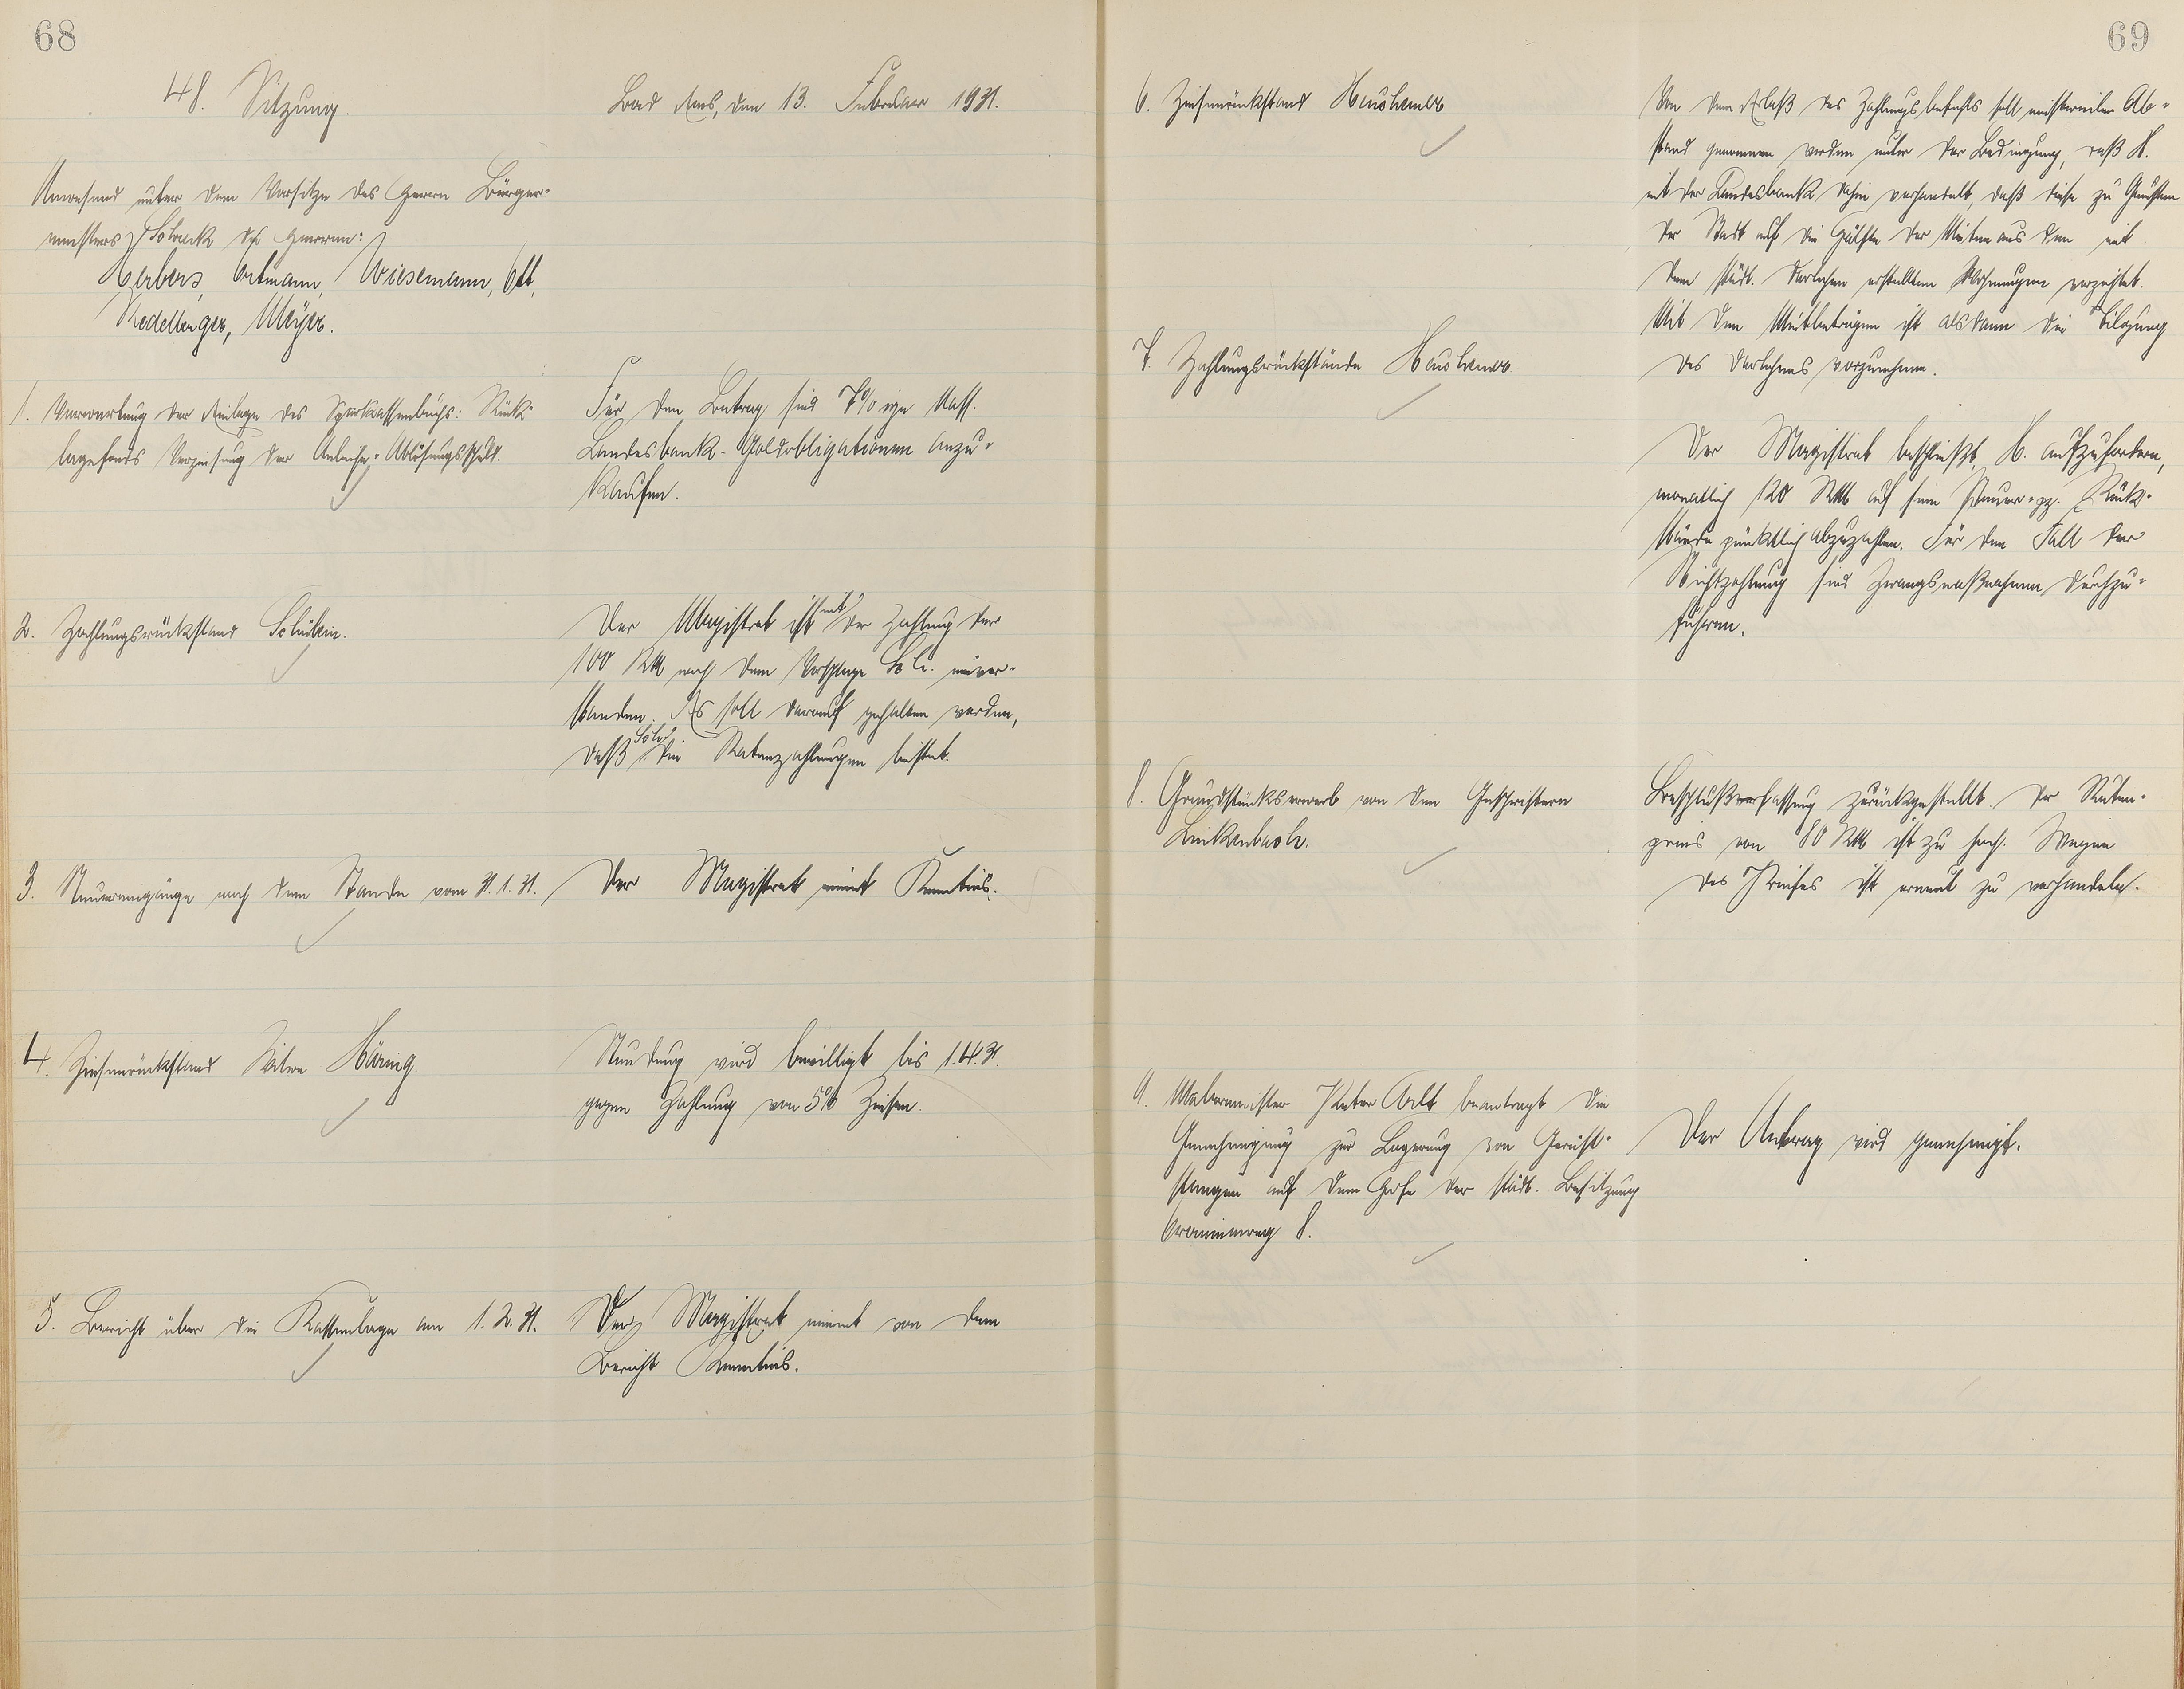 68
48. Sitzung.
Bad Ems, den 13. Februar 1931.
Anwesend unter dem Vorsitze des Herrn Bürger-
meisters Schrack die Herren:
Herbers, Ortmann, Wiesemann, Ott,
Redelberger, Meyer.
1. Verwertung der Einlage des Sparkassenbuchs: Rück-
lagefonds Verzinsung der Anleihe-Ablösungsschuld.
Für den Betrag sind 7%ige Nass.
Landesbank-Goldobligationen anzu-
kaufen.
2. Zahlungsrückstand
Der Magistrat ist mit der Zahlung der
100 RM nach dem Vorschlage Sch. einver-
standen. Es soll darauf gehalten werden,
daß Sch. die Ratenzahlungen leistet.
3. Steuereingänge nach dem Stande vom 31.1.31.
Der Magistrat nimmt Kenntnis.
4. Zinsenrückstand Witwe Häring
Stundung wird bewilligt bis 1.4.31.
gegen Zahlung von 5% Zinsen.
5. Bericht über die Kassenlage am 1.2.31.
Der Magistrat nimmt von dem
Bericht Kenntnis.
69
6. Zinsenrückstand
Von dem Erlaß des Zahlungsbefehls soll einstweilen Ab-
stand genommen werden unter der Bedingung, daß H.
mit der Landesbank dahin verhandelt, daß diese zu Gunsten
der Stadt auf die Hälfte der Mieten aus den mit
dem städt. Darlehen erstellten Wohnungen verzichtet.
Mit den Mietbeträgen ist alsdann die Tilgung
des Darlehens vorzunehmen.
7. Zahlungsrückstände
Der Magistrat beschließt, H. aufzufordern,
monatlich 120 RM auf seine Steuer- pp. Rück-
stände pünktlich abzuzahlen. Für den Fall der
Nichtzahlung sind Zwangsmaßnahmen durchzu-
führen.
8. Grundstückserwerb von den Geschwistern
Linkenbach.
Beschlußfassung zurückgestellt. Der Ruten-
preis von 80 RM ist zu hoch. Wegen
des Preises ist erneut zu verhandeln.
9. Malermeister Peter Arlt beantragt die
Genehmigung zur Lagerung von Gerüst-
stangen auf dem Hofe der städt. Besitzung
Oranienweg 8.
Der Antrag wird genehmigt.